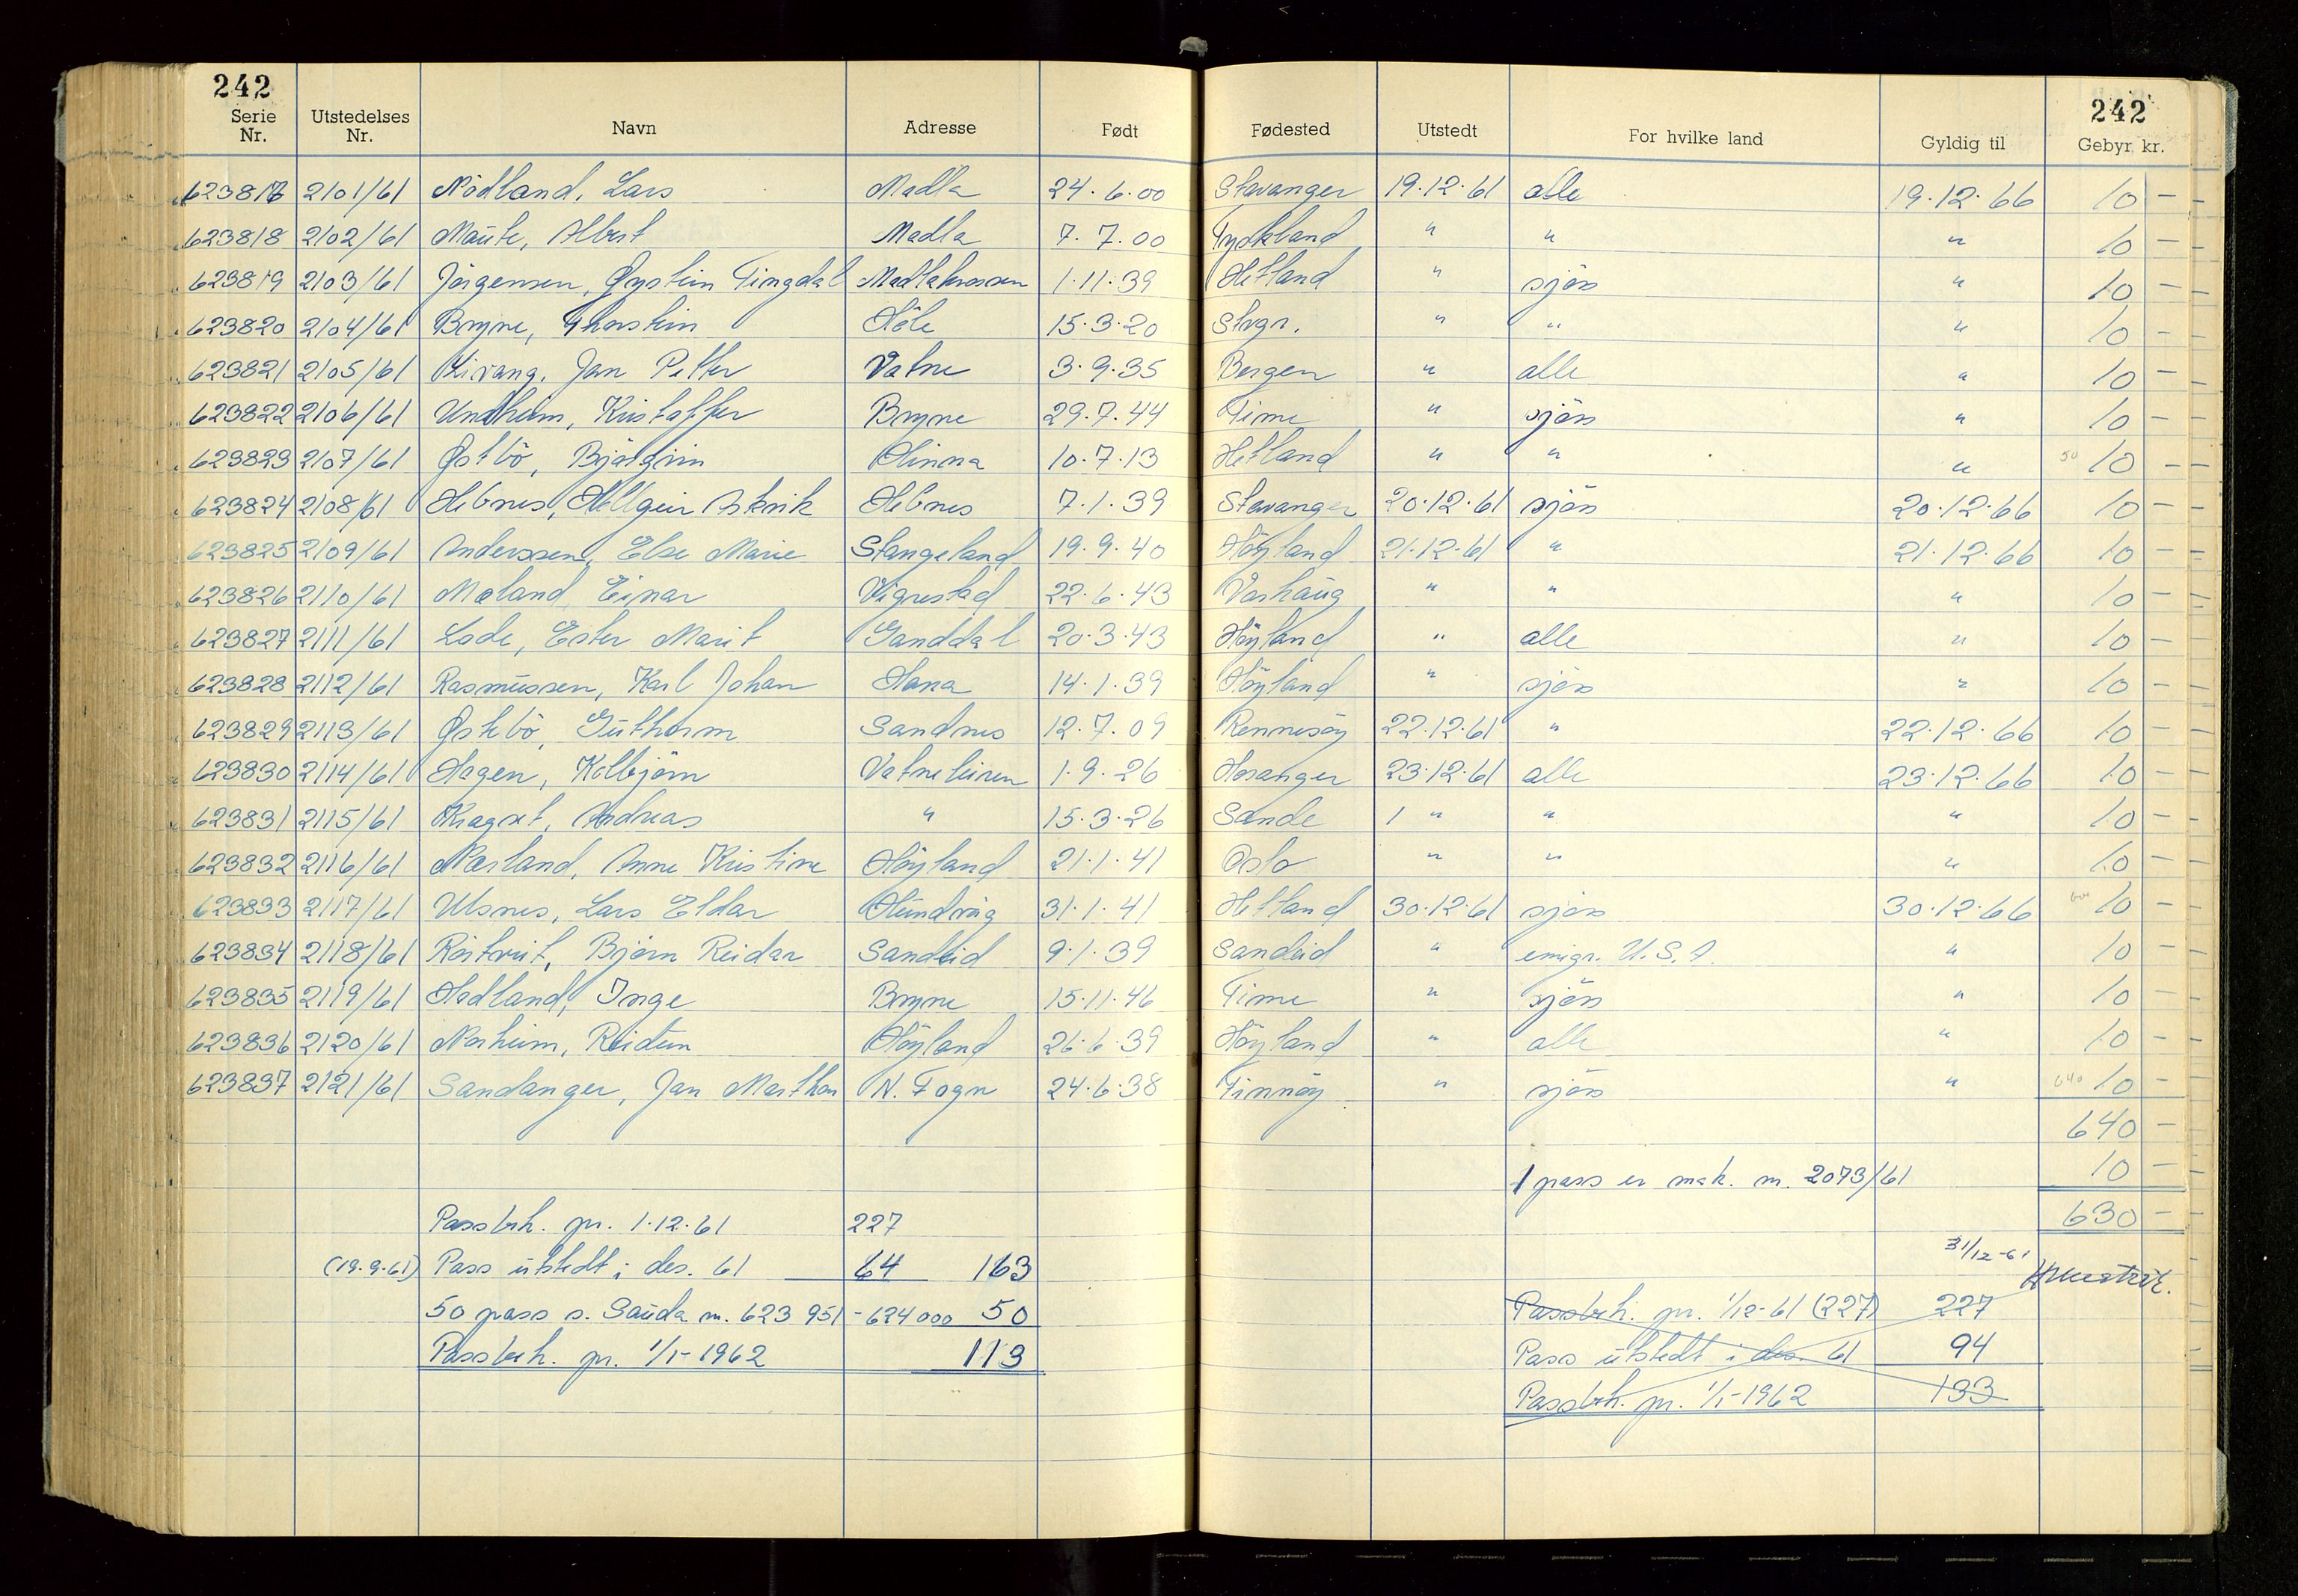 242 242
Serie Nr. Utstedelses Nr. Navn Adresse Født Fødested Utstedt For hvilke land Gyldig til Gebyr kr.
623817 2101/61 Nödland, Lars Madla 24.6.00 Stavanger 19.12.61 alle 19.12.66 10 -
623818 2102/61 Maute, Albert Madla 7.7.00 Tyskland " " " 10 -
623819 2103/61 Jörgensen, Øystein Tingdal Madlakrossen 1.11.39 Hetland " sjös " 10 -
623820 2104/61 Bryne, Thorstein Höle 15.3.20 Stvgr. " " " 10 -
623821 2105/61 Livang, Jan Petter Vatne 3.9.35 Bergen " alle " 10 -
623822 2106/61 Undheim, Kristoffer Bryne 29.7.44 Time " sjös " 10 -
623823 2107/61 Østbö, Bjørgvin Hinna 10.7.13 Hetland " " " 50 10 -
623824 2108/61 Hebnes, Hellgeir Askvik Hebnes 7.1.39 Stavanger 20.12.61 sjös 20.12.66 10 -
623825 2109/61 Anderssen, Else Marie Stangeland 19.9.40 Höyland 21.12.61 " 21.12.66 10 -
623826 2110/61 Moland, Einar Vigrestad 22.6.43 Varhaug " " " 10 -
623827 2111/61 Lode, Ester Marit Ganddal 20.3.43 Höyland " alle " 10 -
623828 2112/61 Rasmussen, Karl Johan Hana 14.1.39 Höyland " sjös " 10 -
623829 2113/61 Østebö, Guthorm Sandnes 12.7.09 Rennesöy 22.12.61 " 22.12.66 10 -
623830 2114/61 Hagen, Kolbjörn Vatneleiren 1.9.26 Hosanger 23.12.61 alle 23.12.66 10 -
623831 2115/61 Kragset, Andreas " 15.3.26 Sande 1 " " " 10 -
623832 2116/61 Nærland, Anne Kristine Höyland 21.1.41 Oslo " " " 10 -
623833 2117/61 Ulsnes, Lars Eldar Hundvåg 31.1.41 Hetland 30.12.61 sjös 30.12.66 600 10 -
623834 2118/61 Röstveit, Bjørn Reidar Sandeid 9.1.39 Sandeid " emigr. U.S.A. " 10 -
623835 2119/61 Hadland, Inge Bryne 15.11.46 Time " sjös " 10 -
623836 2120/61 Norheim, Reidun Höyland 26.6.39 Höyland " alle " 10 -
623837 2121/61 Sandanger, Jan Marthon N. Fogn 24.6.38 Finnöy " sjös " 640 10 -
640 -
1 pass er mak. nr. 2073/61 10 -
Passbeh. pr. 1.12.61 227 630 -
31/12-61
(19.9.61) Pass utstedt i des. 61 64 163
50 pass s. Sauda nr. 623951 - 624000 50 Passbeh. pr. 1/12-61 (227) 227
Passbeh. pr. 1/1-1962 113 Pass utstedt i des. 61 94
Passbeh. pr. 1/1-1962 133